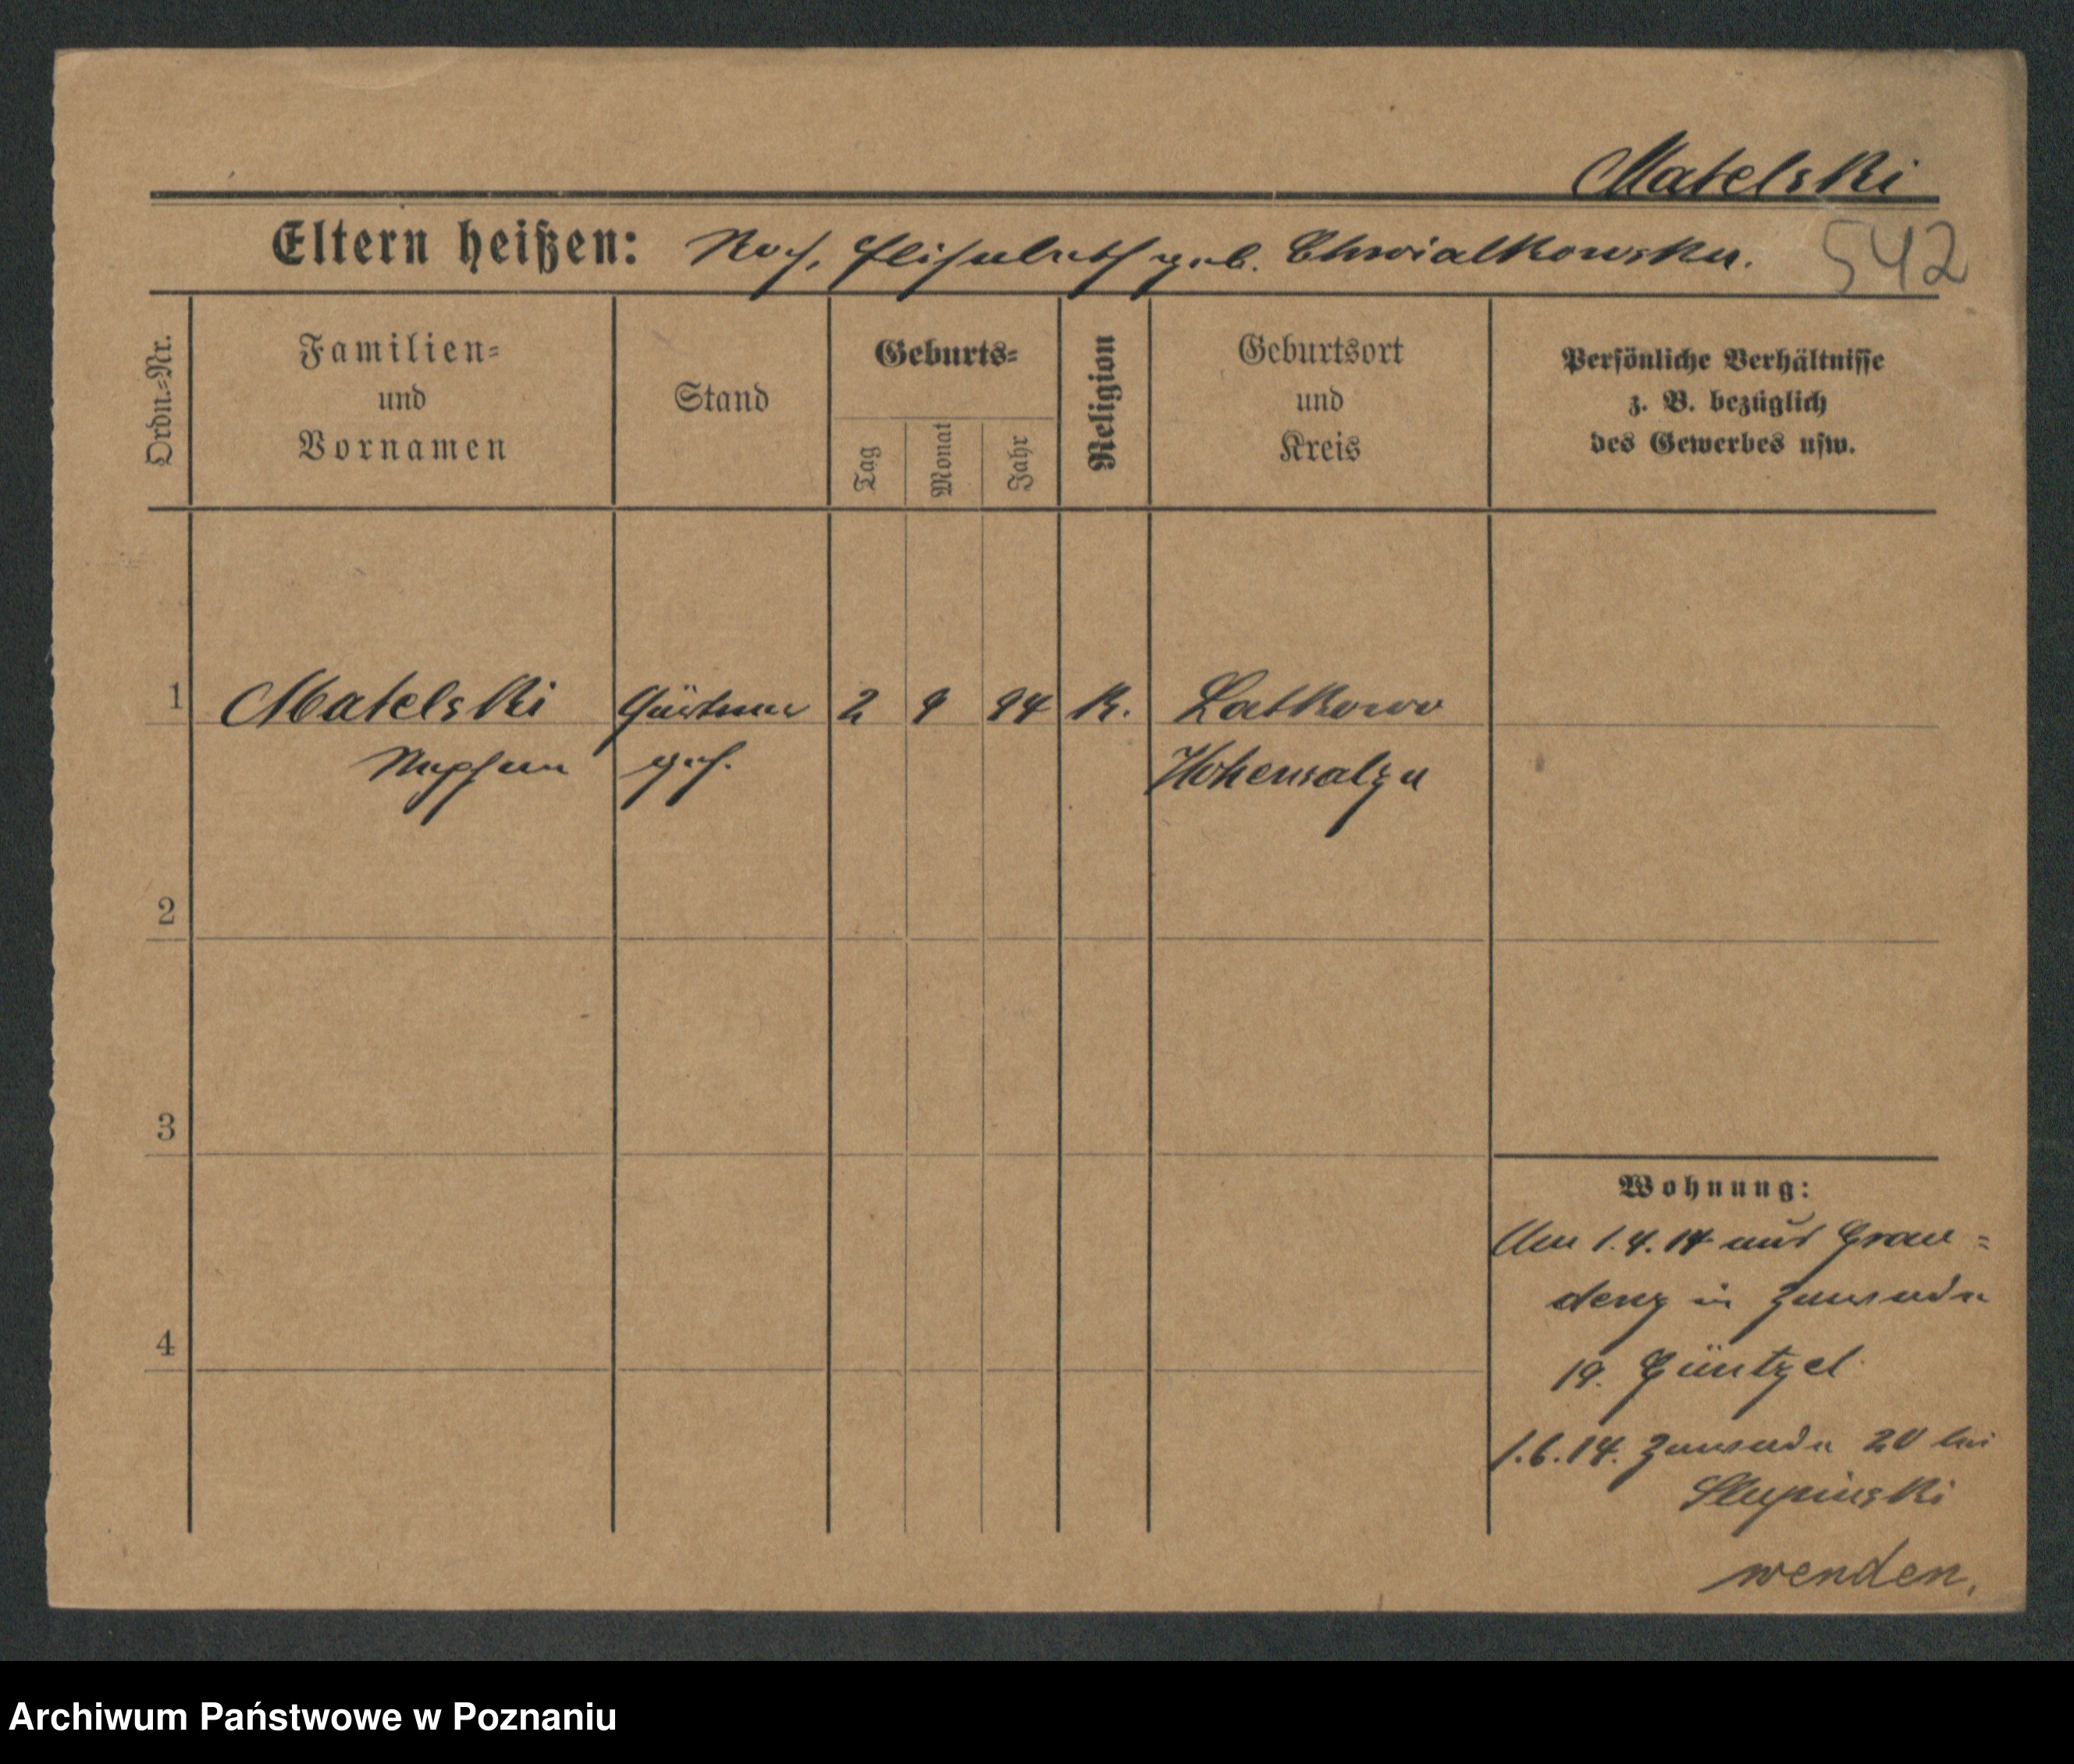 Matelski
Eltern heißen: Roch, Elisabeth geb. Chwialkowska. 542
Ordn.=Nr.
Familien=
und
Vornamen
Stand
Geburts=
Tag
Monat
Jahr
Religion
Geburtsort
und
Kreis
Persönliche Verhältnisse
z. B. bezüglich
des Gewerbes usw.
1 Matelski Gärtner 2 9 94 K. Latkowo
geh. Hohensalza
2
3
4
Wohnung:
Am 1.4.14 aus Grau=
denz in Zawade
19. Güntzel
1.6.14. Zawade 20 bei
Slupinski
wenden.
Archiwum Państwowe w Poznaniu